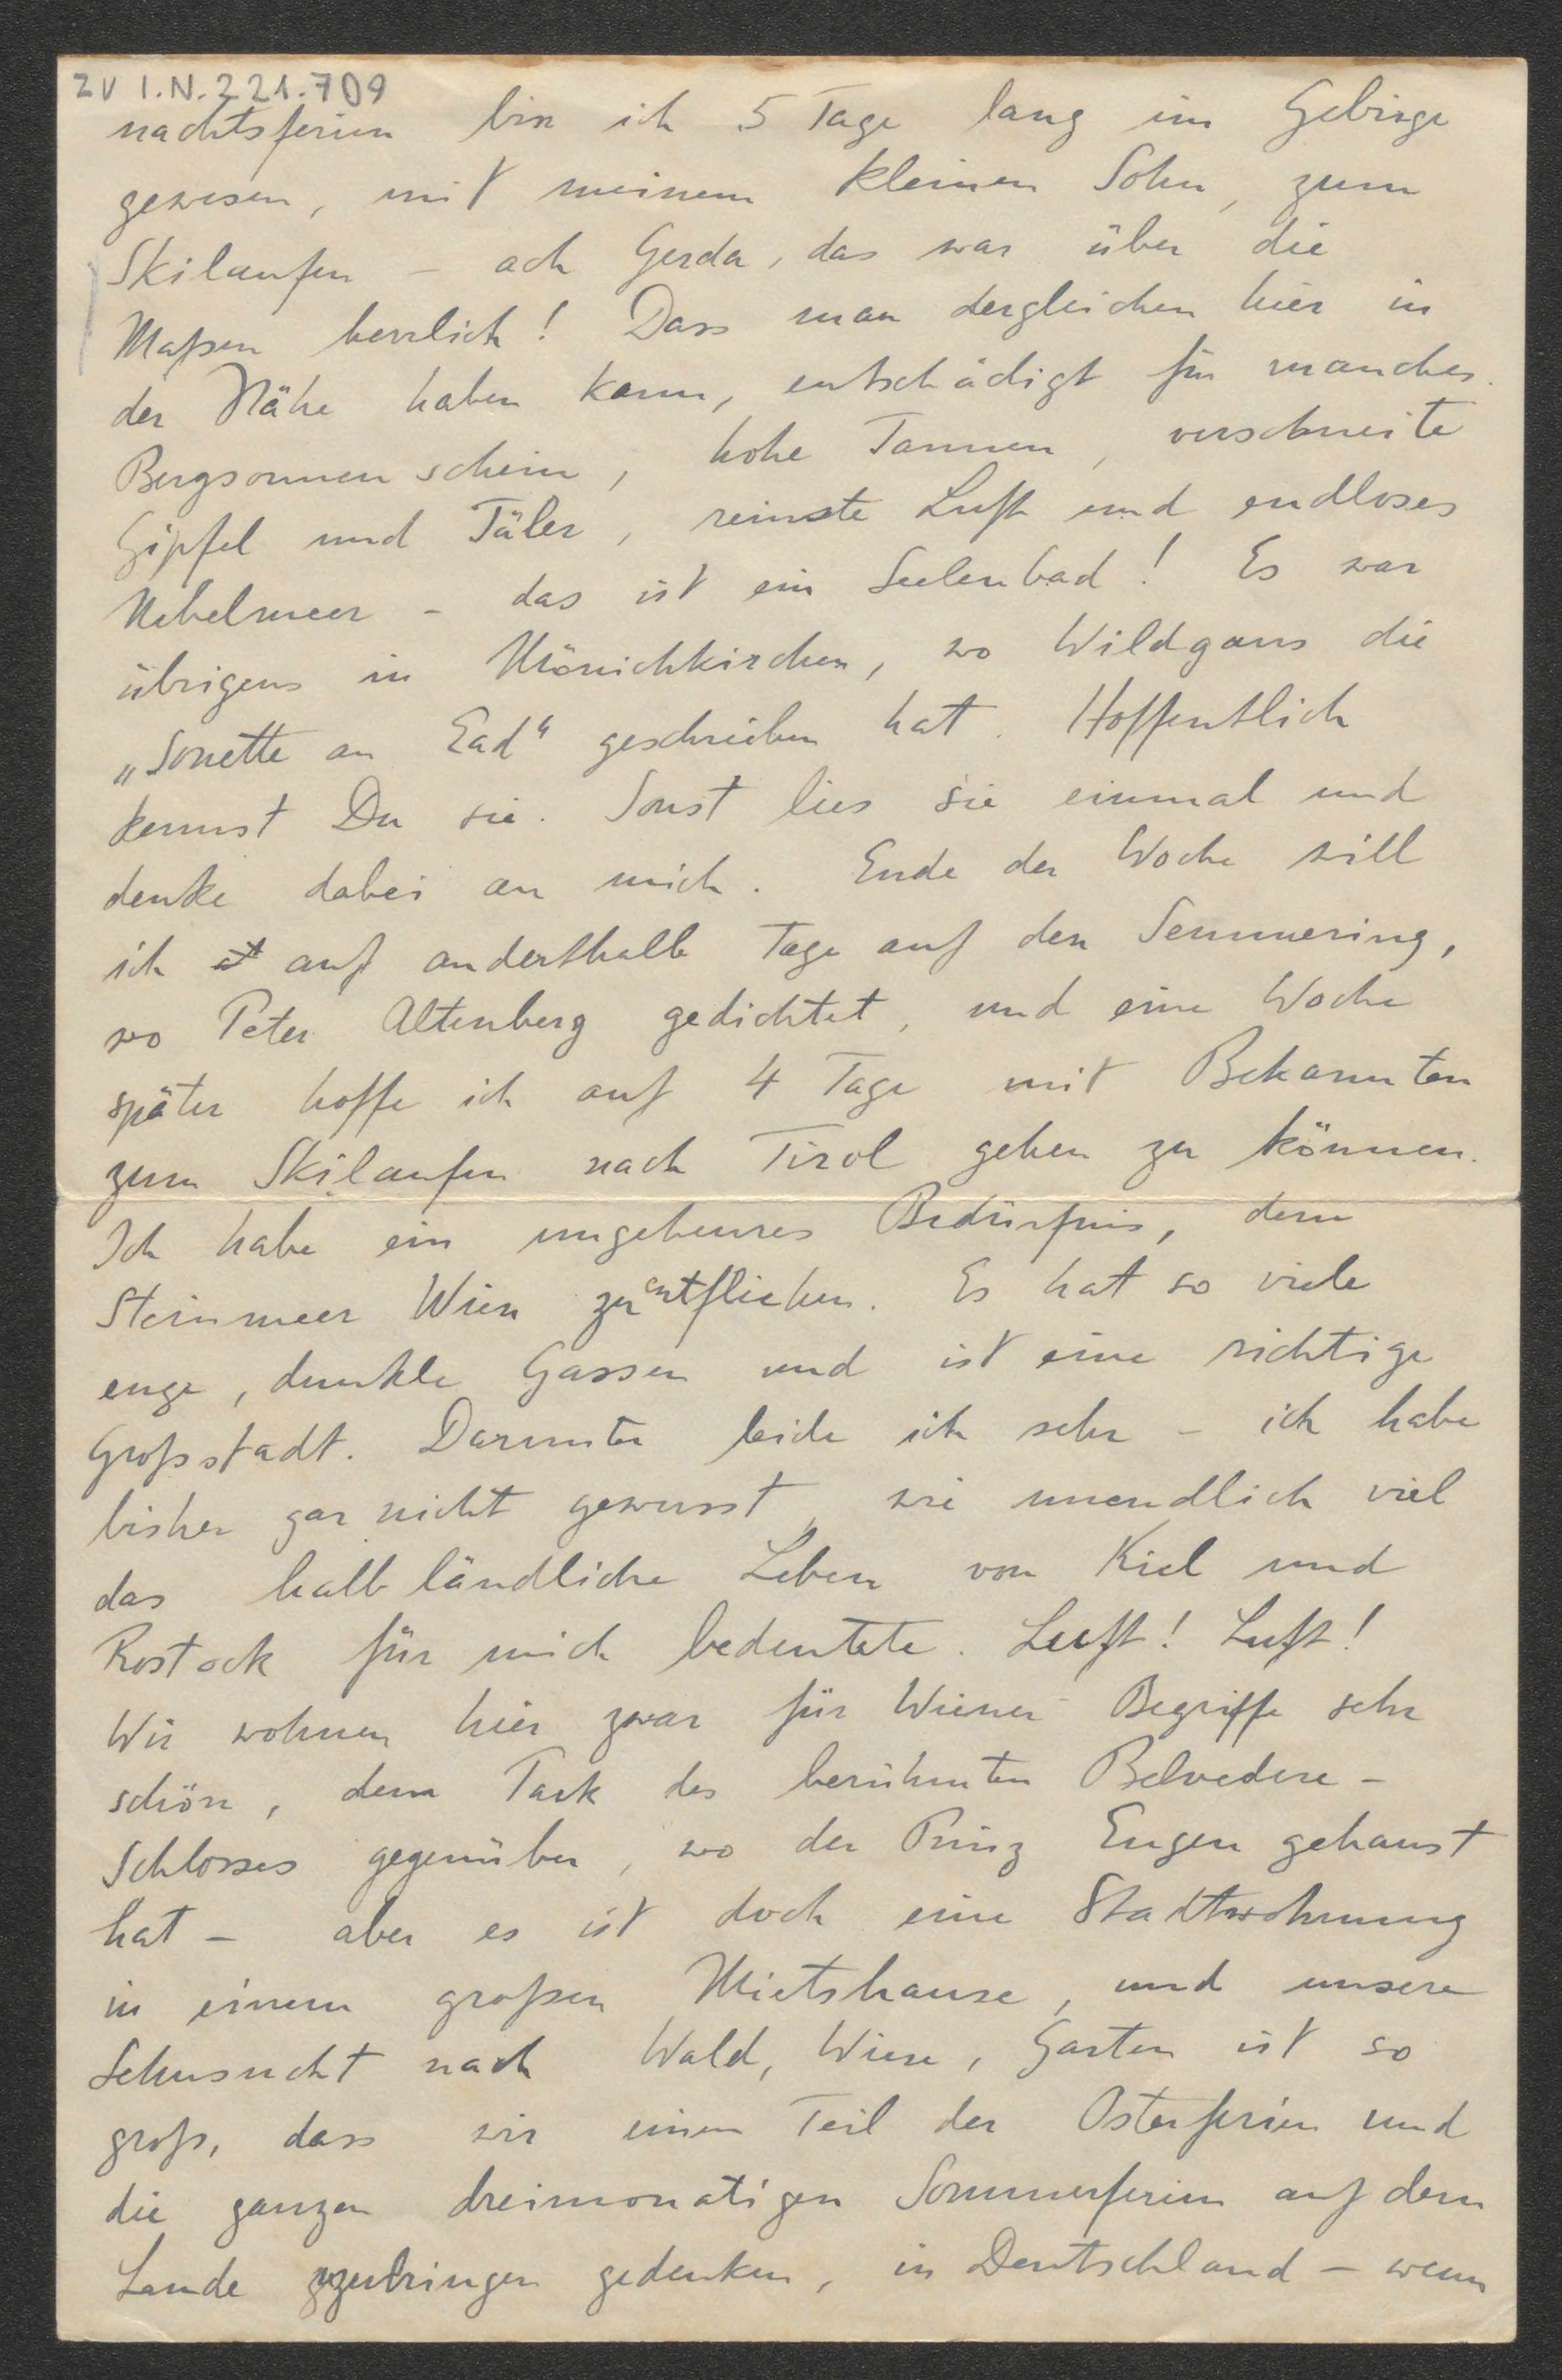 ZV I.N. 221.709
nachtsferien bin ich 5 Tage lang im Gebirge
gewesen, mit meinem kleinen Sohn, zum
Skilaufen – ach Gerda, das war über die
Maßen herrlich! Dass man dergleichen hier in
der Nähe haben kann, entschädigt für manches.
Bergsonnenschein, hohe Tannen, verschneite
Gipfel und Täler, reinste Luft und endloses
Nebelmeer – das ist ein Seelenbad! Es war
übrigens in Mönichkirchen, wo Wildgans die
„Sonette an Ead“ geschrieben hat. Hoffentlich
kennst Du sie. Sonst lies sie einmal und
denke dabei an mich. Ende der Woche will
ich auf anderthalb Tage auf den Semmering,
wo Peter Altenberg gedichtet, und eine Woche
später hoffe ich auf 4 Tage mit Bekannten
zum Skilaufen nach Tirol gehen zu können.
Ich habe ein ungeheures Bedürfnis, dem
Steinmeer Wien zu entfliehen. Es hat so viele
enge, dunkle Gassen und ist eine richtige
Großstadt. Darunter leide ich sehr – ich habe
bisher gar nicht gewusst, wie unendlich viel
das halb ländliche Leben von Kiel und
Rostock für mich bedeutete. Luft! Luft!
Wir wohnen hier zwar für Wiener Begriffe sehr
schön, dem Park des berühmten Belvedere-
Schlosses gegenüber, wo der Prinz Eugen gehaust
hat – aber es ist doch eine Stadtwohnung
in einem großen Mietshause, und unsere
Sehnsucht nach Wald, Wiese, Garten ist so
groß, dass wir einen Teil der Osterferien und
die ganzen dreimonatigen Sommerferien auf dem
Lande zuzubringen gedenken, in Deutschland – wenn